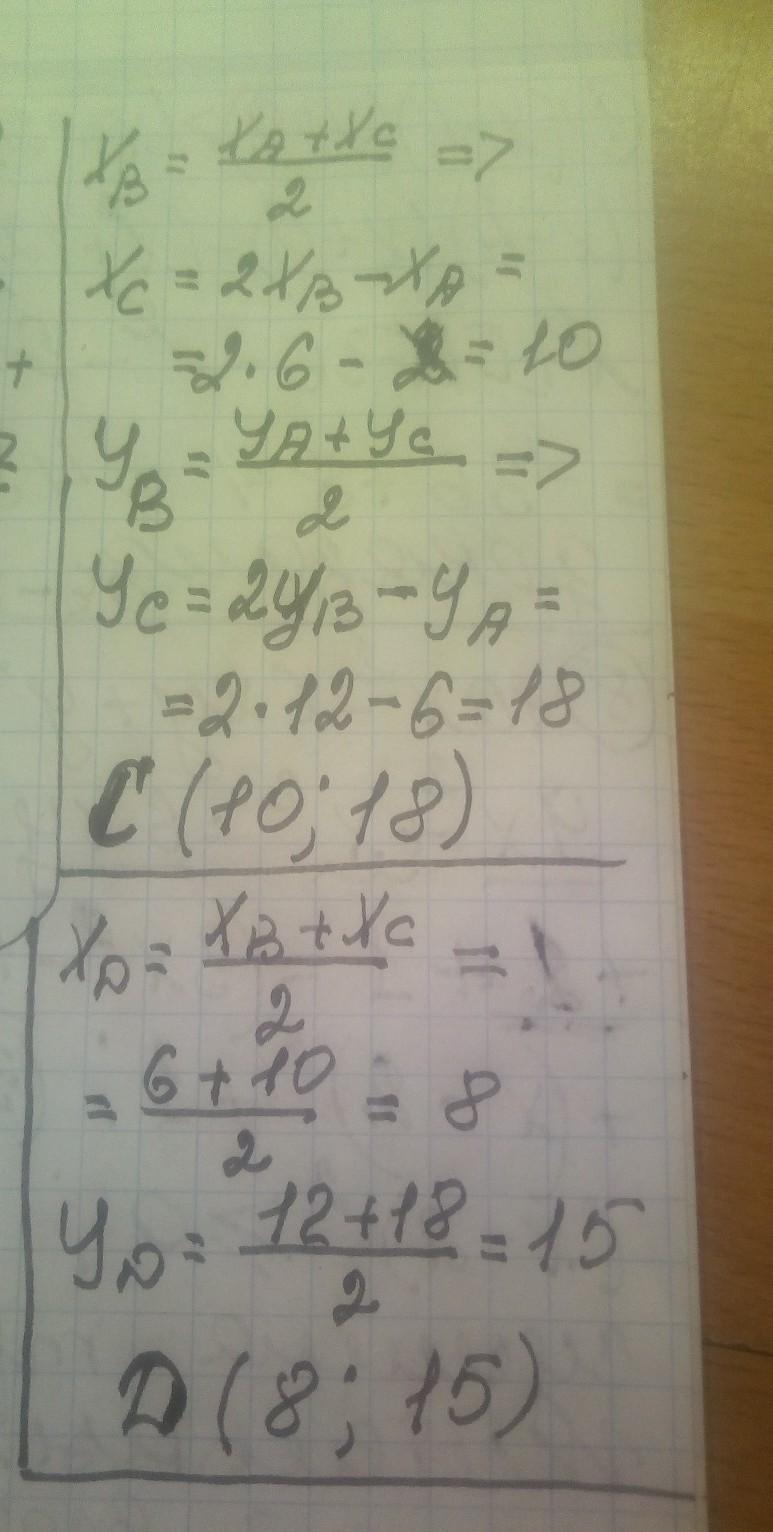 X_B = (X_A + X_C)/2 =>
X_C = 2X_B - X_A =
= 2 · 6 - 2 = 10
y_B = (y_A + y_C)/2 =>
y_C = 2y_B - y_A =
= 2 · 12 - 6 = 18
C (10; 18)
X_D = (X_B + X_C)/2 =
= (6 + 10)/2 = 8
y_D = (12 + 18)/2 = 15
D (8; 15)